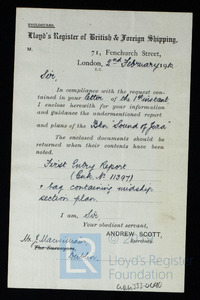 Lloyd's Register of British & Foreign Shipping.
M.
71, Fenchurch Street,
London, 2nd February 191
E.C.
Sir,
In compliance with the request con-
tained in your letter of the 1st instant
I enclose herewith for your information
and guidance the undermentioned report
and plans of the Bkn "Sound of Jura"
The enclosed documents should be
returned when their contents have been
noted.
First Entry Report
(Gnk. No 11397)
+ bag containing midship
section plan.
I am, Sir,
Your obedient servant,
ANDREW SCOTT,
Secretary.
Mr. J. Macmillan
The Surveyors,